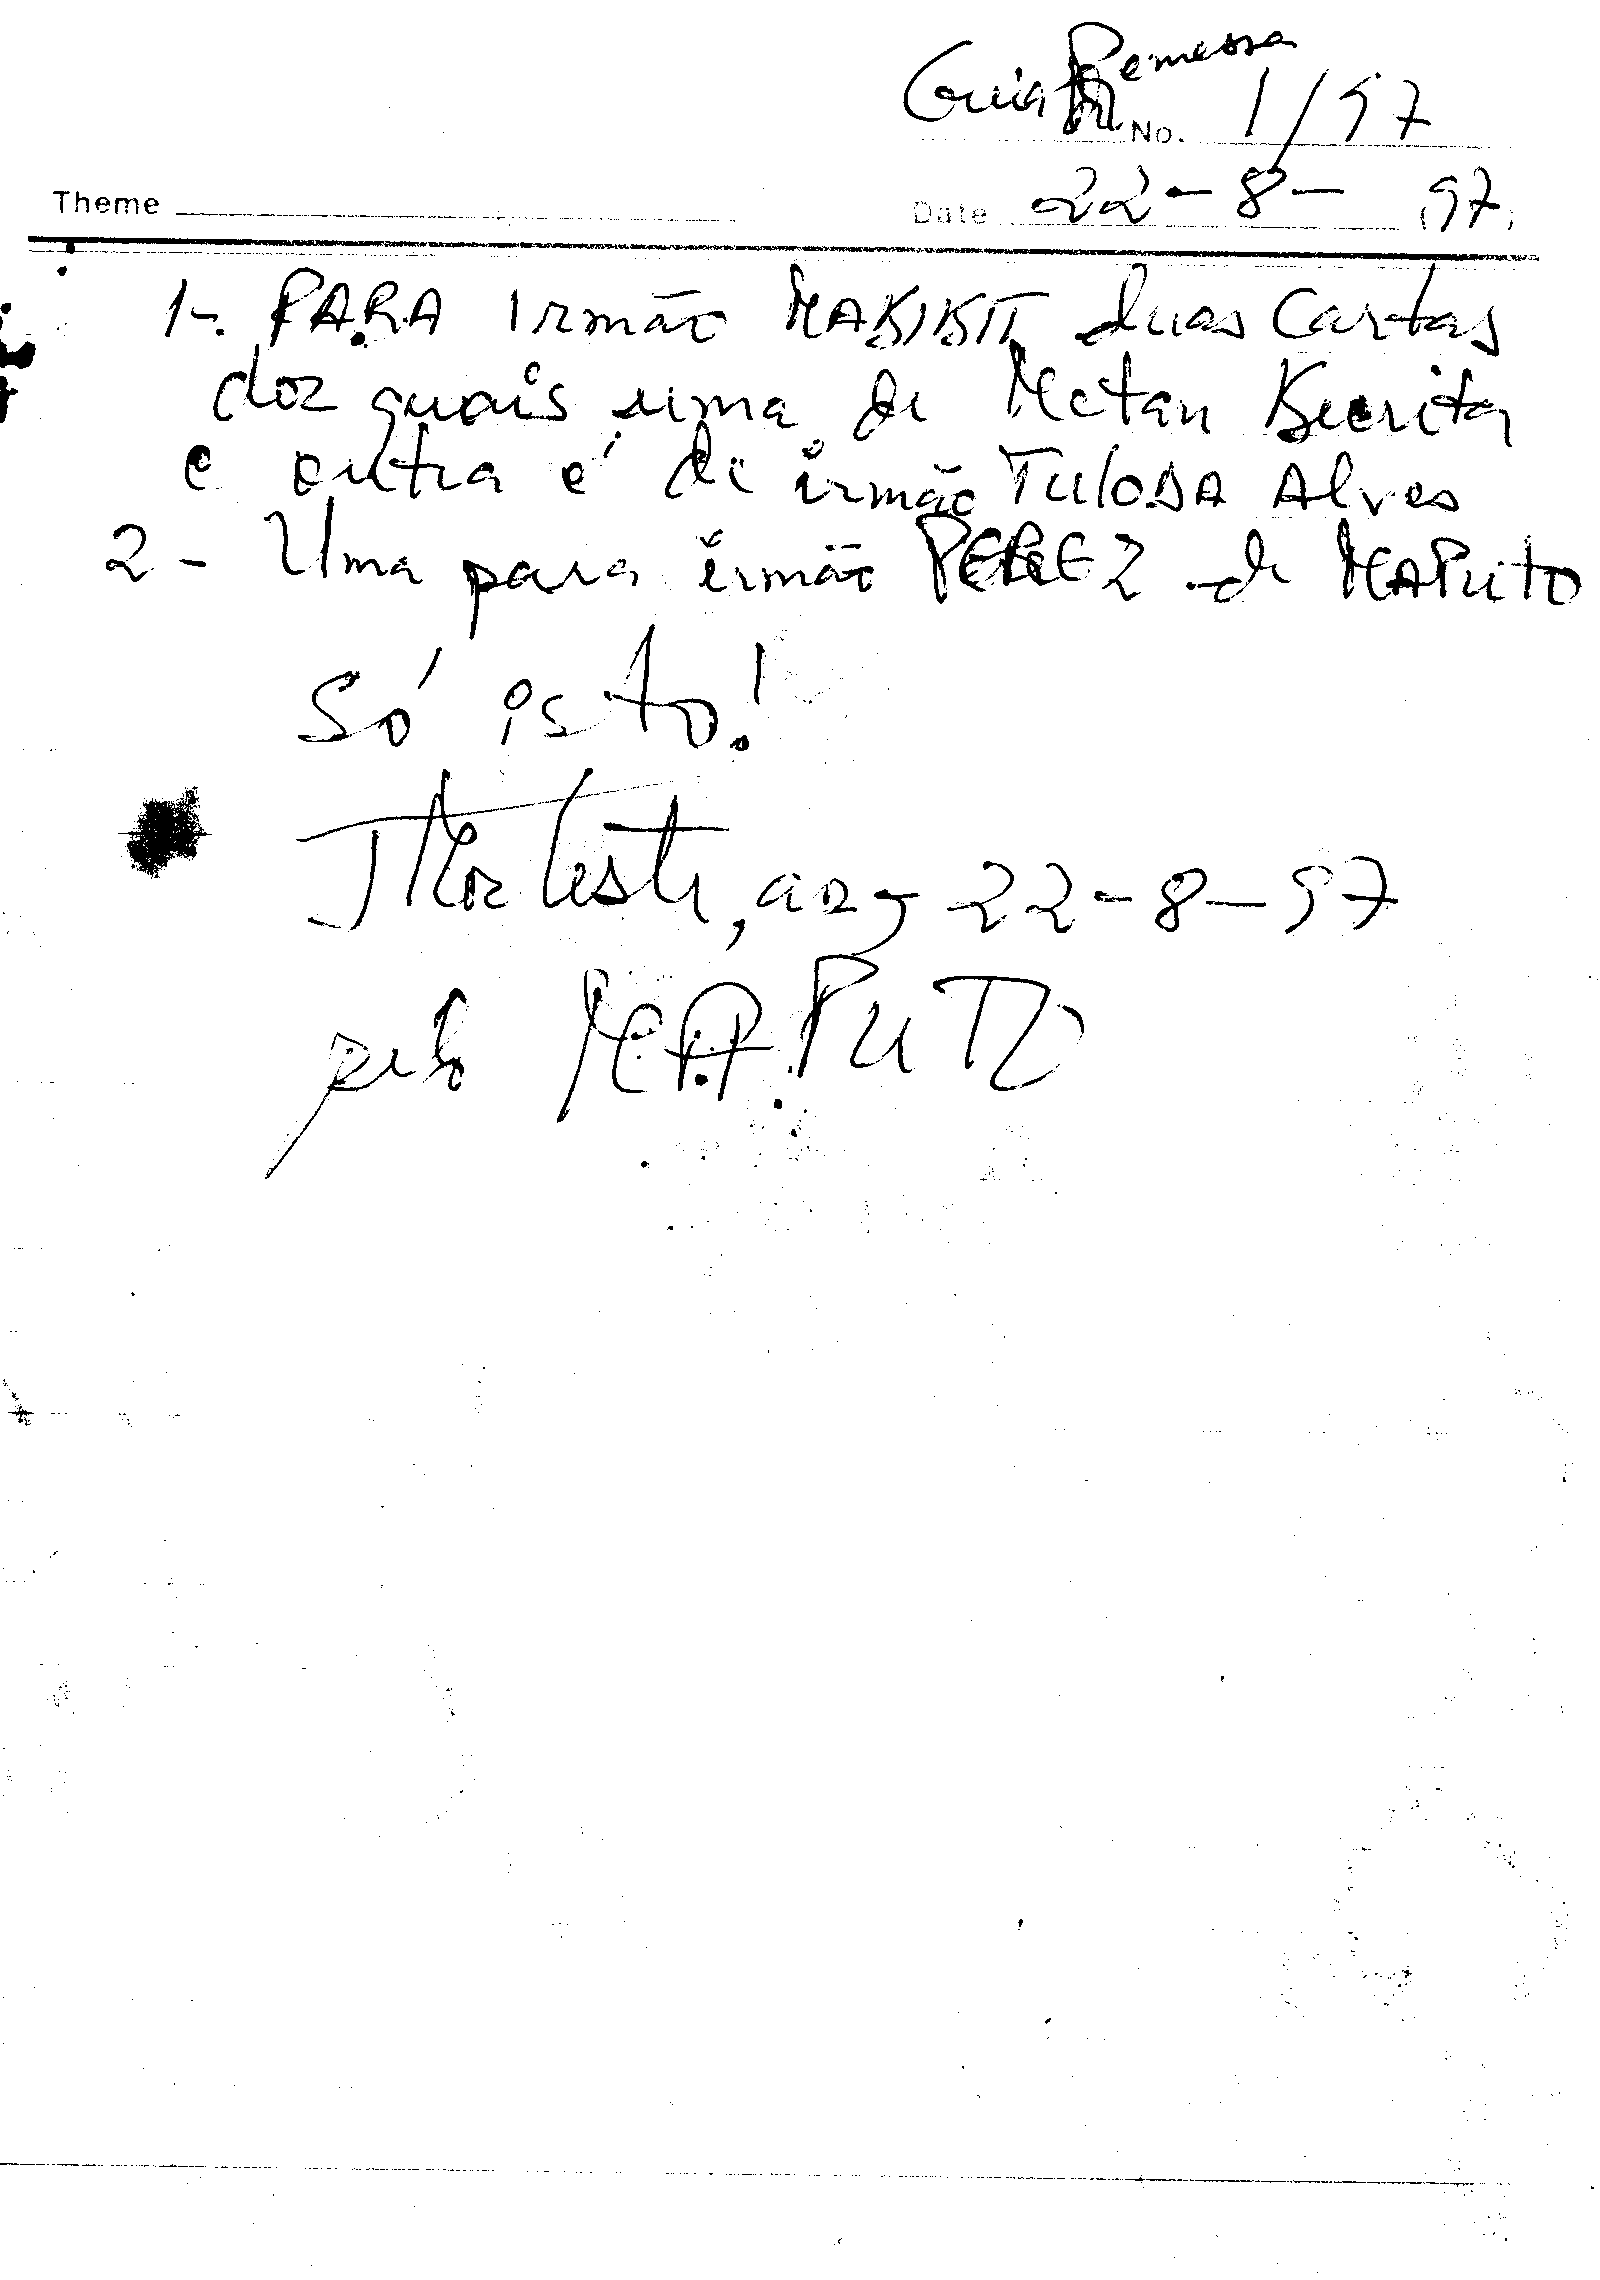 Guia Remessa
No. 1/97
Theme Date 22-8- 97
1-. PARA irmão MAKIKIT duas cartas
dos quais uma de Metan Kuerita
e outra é de irmão TULODA Alves
2 - Uma para irmão PEREZ de MAPUTO
Só isto!
TMor Leste, aos 22-8-97
pelo MAPUTO